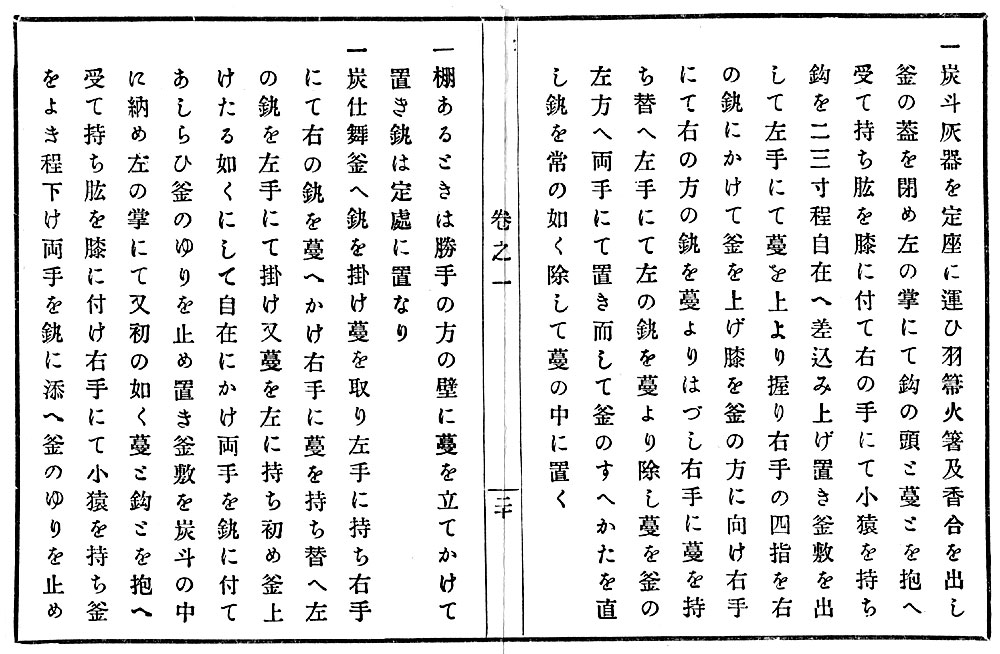 一炭斗灰器を定座に運ひ羽箒火箸及香合を出し
釜の葢を閉め左の掌にて鈎の頭と蔓とを抱へ
受て持ち肱を膝に付て右の手にて小猿を持ち
鈎を二三寸程自在へ差込み上げ置き釜敷を出
して左手にて蔓を上より握り右手の四指を右
の銚にかけて釜を上げ膝を釜の方に向け右手
にて右の方の銚を蔓よりはづし右手に蔓を持
ち替へ左手にて左の銚を蔓より除し蔓を釜の
左方へ両手にて置き而して釜のすへかたを直
し銚を常の如く除して蔓の中に置く
巻之一
二十
一棚あるときは勝手の方の壁に蔓を立てかけて
置き銚は定處に置なり
一炭仕舞釜へ銚を掛け蔓を取り左手に持ち右手
にて右の銚を蔓へかけ右手に蔓を持ち替へ左
の銚を左手にて掛け又蔓を左に持ち初め釜上
けたる如くにして自在にかけ両手を銚に付て
あしらひ釜のゆりを止め置き釜敷を炭斗の中
に納め左の掌にて又初の如く蔓と鈎とを抱へ
受て持ち肱を膝に付け右手にて小猿を持ち釜
をよき程下け両手を銚に添へ釜のゆりを止め